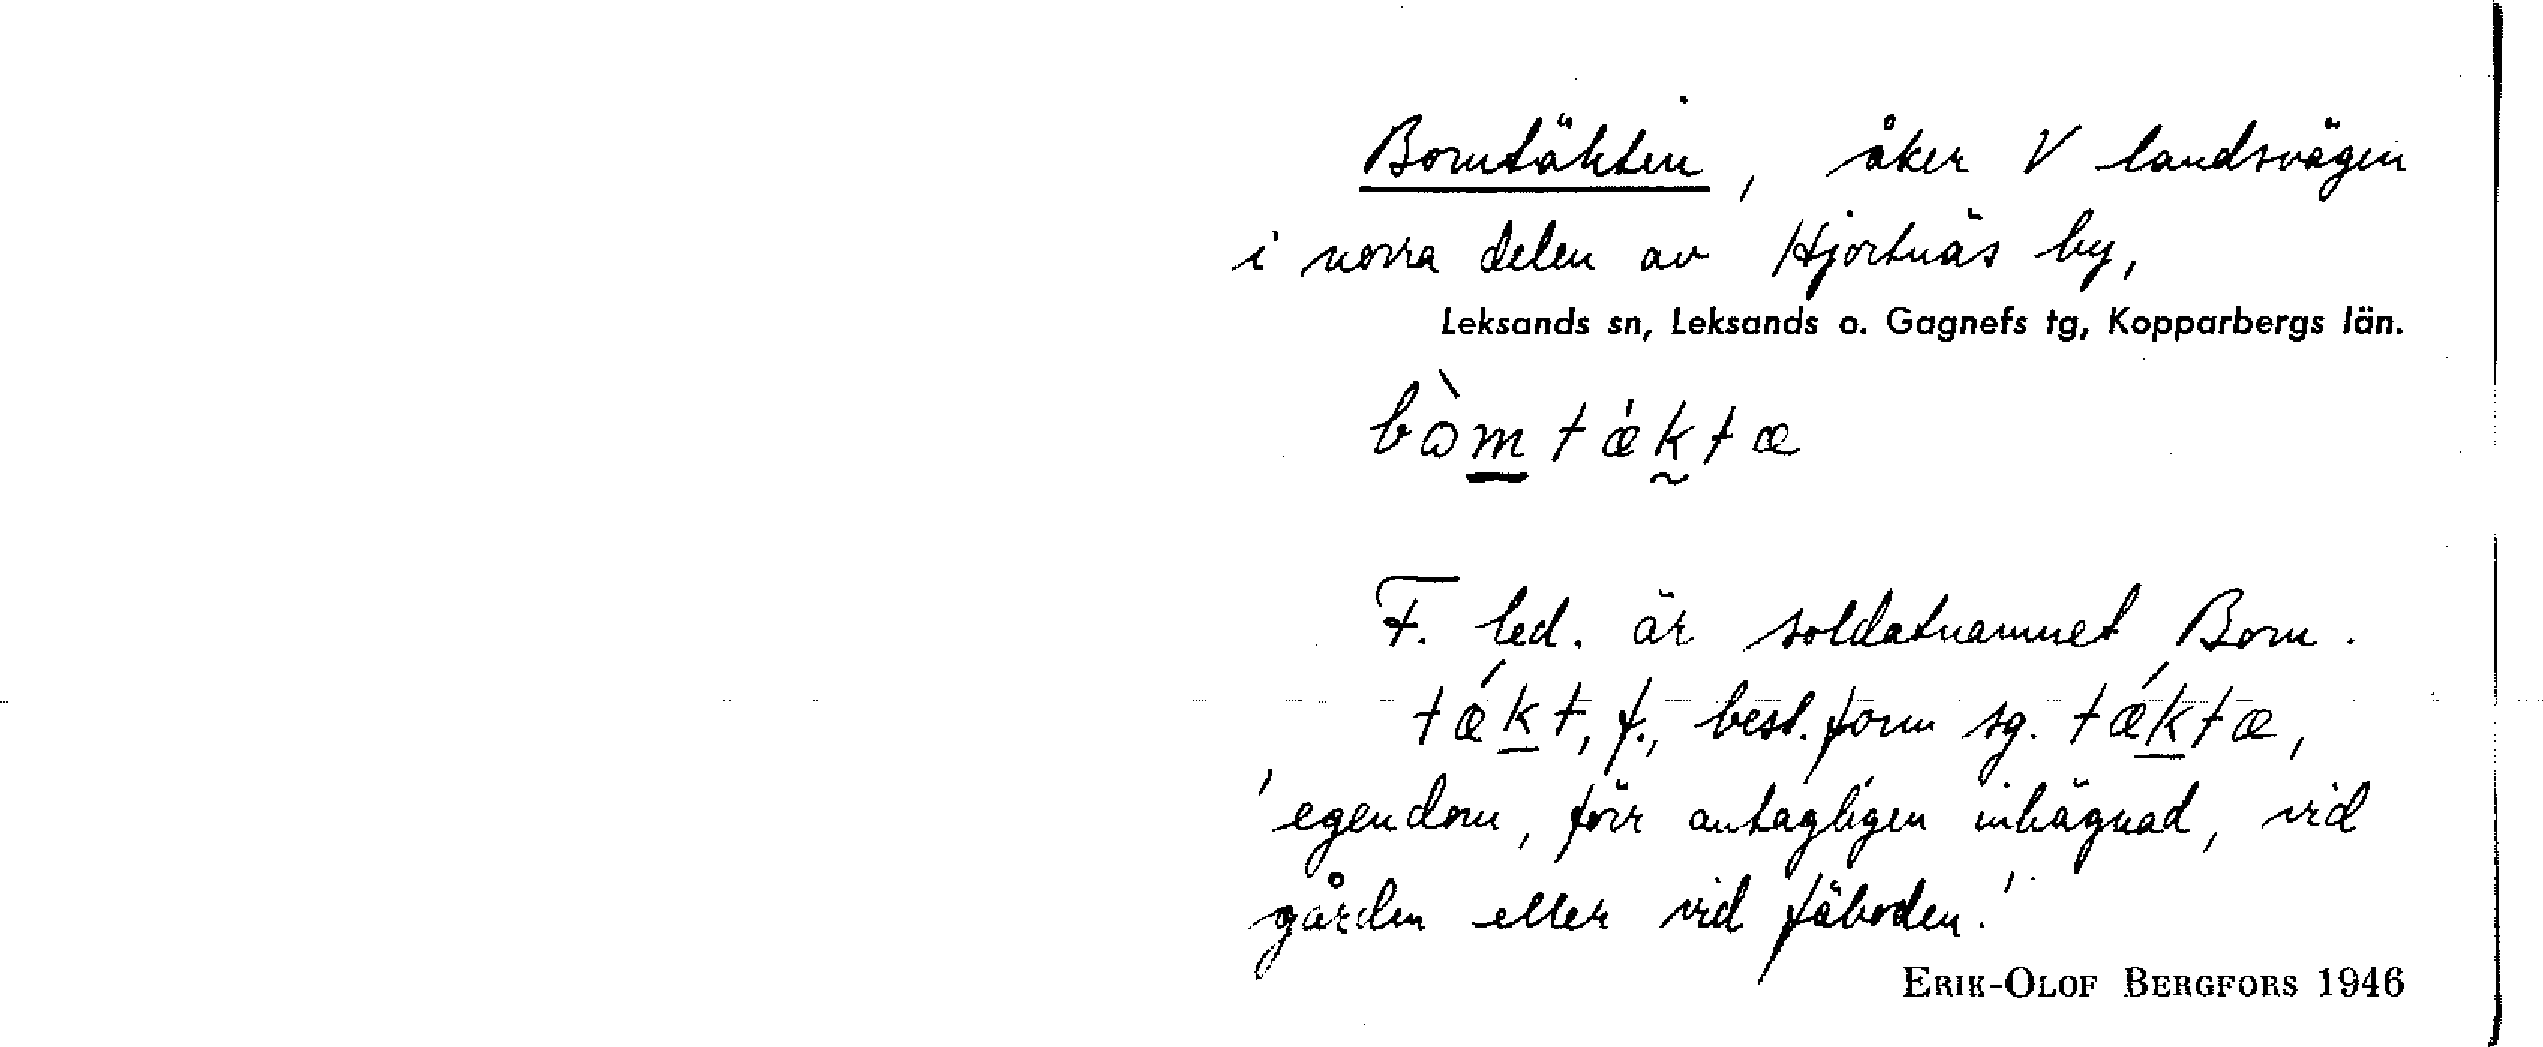 Bomtäkten, åker V landsvägen
i norra delen av Hjortnäs by,
Leksands sn, Leksands o. Gagnefs tg, Kopparbergs län.
bòmtǽktæ
F. led. är soldatnamnet Bom.
tǽkt, f., best. form sg. tǽktæ,
'egendom, förr antagligen inhägnad, vid
gården eller vid fäboden.'
ERIK-OLOF BERGFORS 1946